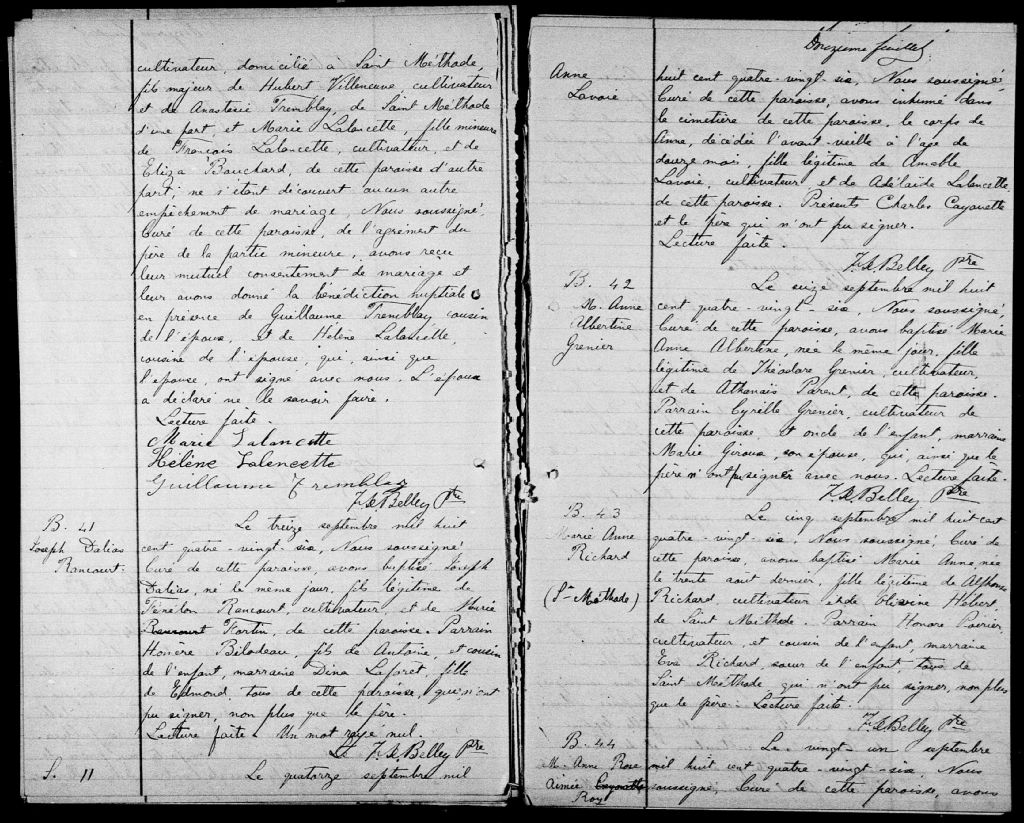 cultivateur, domicilié à Saint Méthode,
fils majeur de Hubert Villeneuve, cultivateur
et de Anastasie Tremblay, de Saint Méthode
d'une part, et Marie Lalancette, fille mineure
de François Lalancette, cultivateur, et de
Eliza Bouchard, de cette paroisse d'autre
part; ne s'étant découvert aucun autre
empêchement de mariage, Nous soussigné,
Curé de cette paroisse, de l'agrément du
père de la partie mineure, avons reçu
leur mutuel consentement de mariage et
leur avons donné la bénédiction nuptiale
en présence de Guillaume Tremblay cousin
de l'époux, et de Hélène Lalancette,
cousine de l'épouse, qui, ainsi que
l'épouse, ont signé avec nous. L'époux
a déclaré ne le savoir faire.
Lecture faite.
Marie Lalancette
Hélène Lalencette
Guillaume Tremblay
Belley Ptre
B. 41
Joseph Dalias
Rancourt.
Le treize septembre mil huit
cent quatre-vingt-six, Nous soussigné,
Curé de cette paroisse, avons baptisé Joseph
Dalias, né le même jour, fils légitime de
Fénélon Rancourt, cultivateur, et de
Rancourt Fortin, de cette paroisse. Parrain
Honoré Bilodeau, fils de Antoine, et cousin
de l'enfant, marraine Dina Laforet, fille
de Edmond, tous de cette paroisse, qui n'ont
pu signer, non plus que le père.
Lecture faite. Un mot rayé nul.
Belley Ptre
S. 11
Le quatorze septembre mil
Onzième feuillet
Anne
Lavoie
huit cent quatre-vingt-six, Nous soussigné,
Curé de cette paroisse, avons inhumé dans
le cimetière de cette paroisse, le corps de
Anna, décédée l'avant-veille à l'age de
douze mois, fille légitime de Amable
Lavoie, cultivateur, et de Adélaïde Lalancette,
de cette paroisse. Présents Charles Cayouette
et le père qui n'ont pu signer.
Lecture faite.
Belley Ptre
B. 42
M. Anne
Albertine
Grenier
Le seize septembre mil huit
cent quatre-vingt-six, Nous soussigné,
Curé de cette paroisse, avons baptisé Marie
Anne Albertine, née le même jour, fille
légitime de Théodore Grenier, cultivateur,
et de Athanaïs Parent, de cette paroisse.
Parrain Cyrille Grenier, cultivateur de
cette paroisse, et oncle de l'enfant, marraine
Marie Giroux, son épouse, qui, ainsi que le
père n'ont pu signer avec nous. Lecture faite.
Belley Ptre
B. 43
Marie Anne
Richard
(St Méthode)
Le cinq septembre mil huit cent
quatre-vingt-six. Nous soussigné, Curé de
cette paroisse, avons baptisé Marie Anne, née
le trente aout dernier, fille légitime de Alphonse
Richard, cultivateur et de Hébert,
de Saint Méthode. Parrain Honoré Poirier,
cultivateur, et cousin de l'enfant, marraine
Eva Richard, soeur de l'enfant, tous de
Saint Méthode qui n'ont pu signer, non plus
que le père. Lecture faite.
Belley Ptre
B. 44
M. Anne Rose
Aimée Cayouette
Roy
Le vingt un septembre
mil huit cent quatre-vingt-six, Nous
soussigné, Curé de cette paroisse, avons